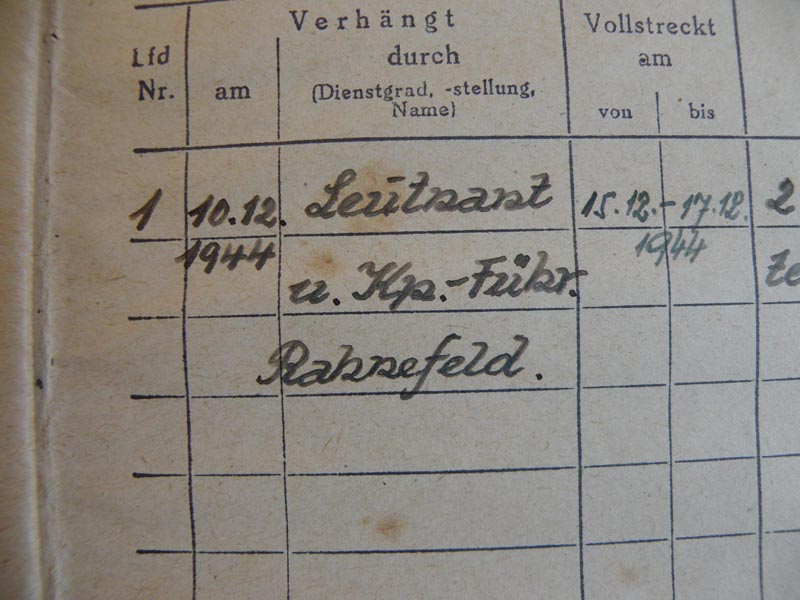 Verhängt
Vollstreckt
Lfd
Nr.
am
durch
(Dienstgrad, -stellung,
Name)
am
von
bis
1 10.12. Leutnant 15.12.-17.12. 2
1944 u. Kp.-Führ. 1944 te
Rannefeld.